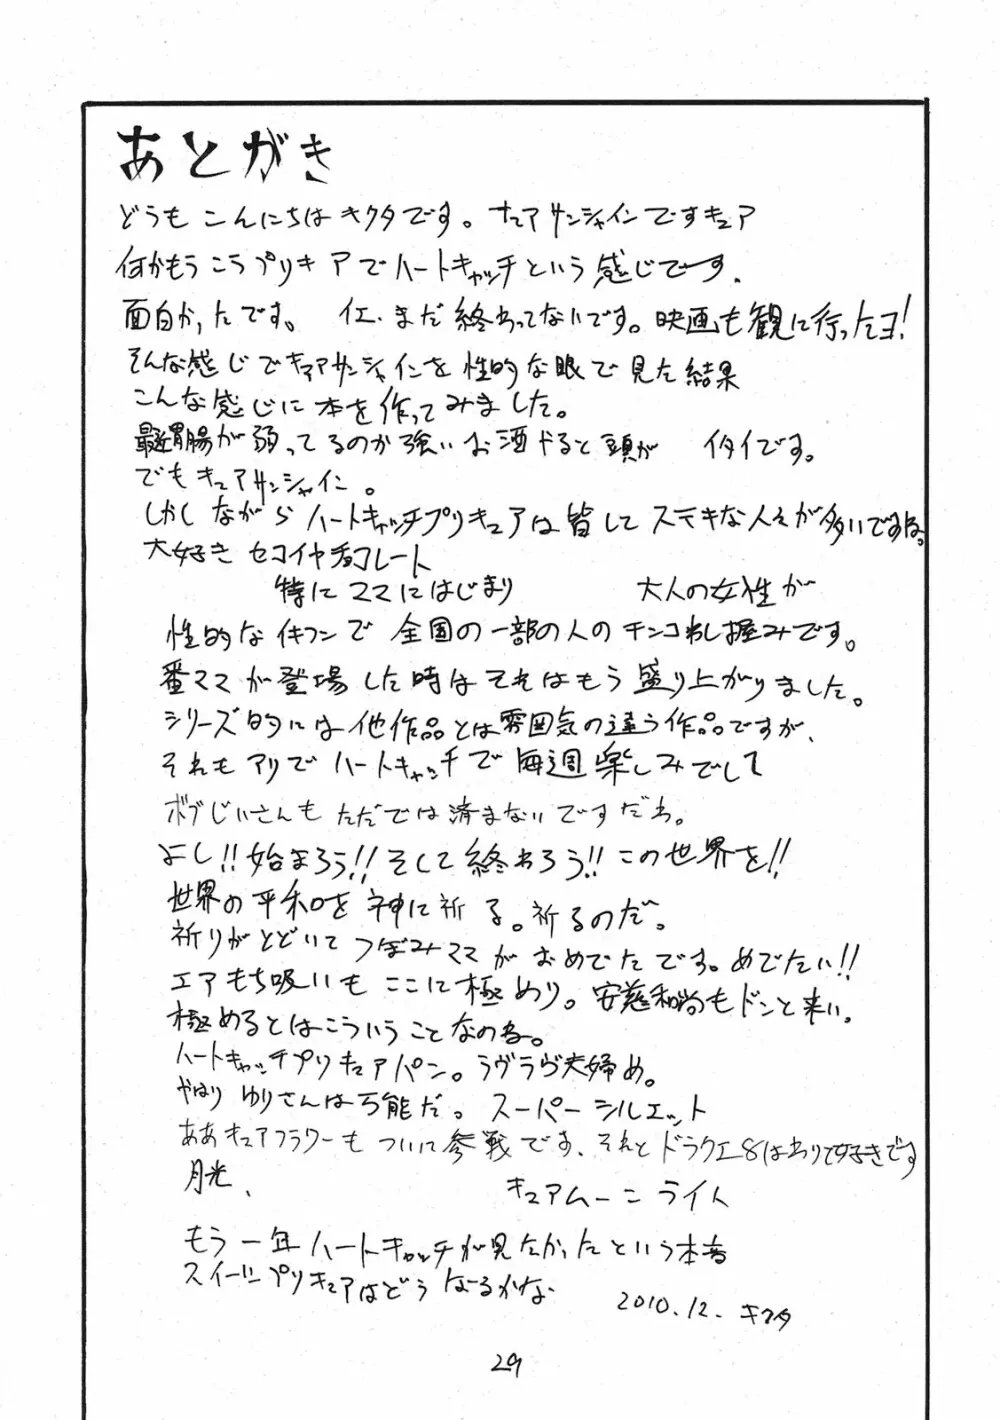 あとがき
どうもこんにちはキクタです。キュアサンシャインですキュア
何かもうこうプリキュアでハートキャッチという感じです.
面白かったです。 イエ、まだ終わってないです。映画も観に行ったヨ!
そんな感じでキュアサンシャインを性的な眼で見た結果
こんな感じに本を作ってみました。
最近胃腸が弱ってるのか強いお酒やると頭が イタイです。
でもキュアサンシャイン。
しかしながらハートキャッチプリキュアは皆してステキな人々が多いですね。
大好きセコイヤチョコレート
特にママにはじまり 大人の女性が
性的なイキフンで全国の一部の人のチンコわし掴みです。
番ママが登場した時はそれはもう盛り上がりました。
シリーズ的には他作品とは雰囲気の違う作品ですが、
それもアリでハートキャッチで毎週楽しみでして
ボブじいさんもただでは済まないですだわ。
よし!!始まろう!!そして終わろう!!この世界を!!
世界の平和を神に祈る。祈るのだ。
祈りがとどいてつぼみママがおめでたです。めでたい!!
エアもち吸いもここに極めり。安慈和尚もドンと来い。
極めるとはこういうことなのね。
ハートキャッチプリキュアパン。ラヴラヴ夫婦め。
やはりゆりさんは万能だ。スーパーシルエット
ああキュアフラワーもついに参戦です、それとドラクエ8はわりと好きです
月光、 キュアムーンライト
もう一年ハートキャッチが見たかったという本音
スイーツプリキュアはどうなるかな
2010.12. キクタ
29